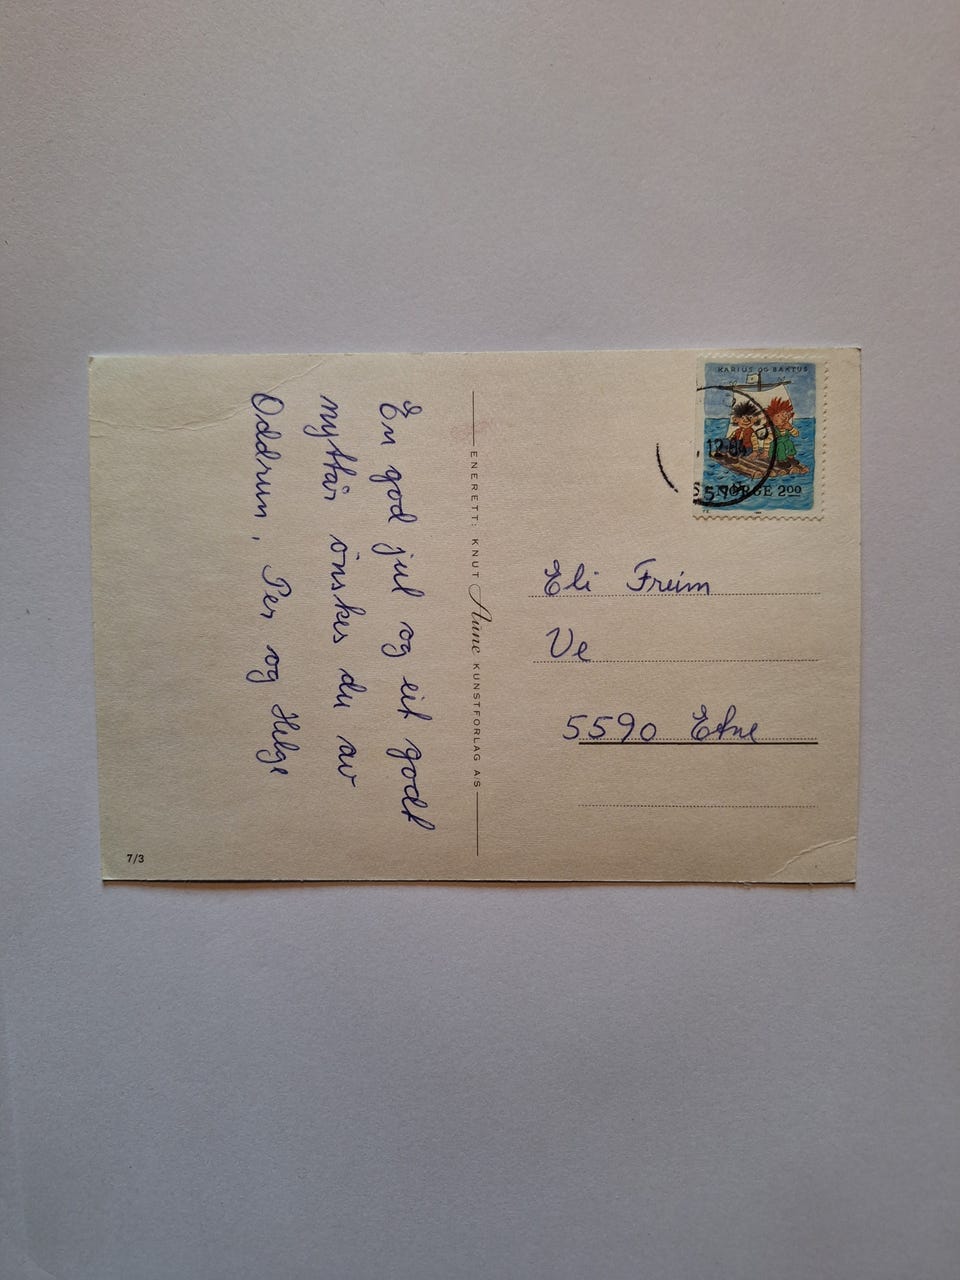 En god jul og eit godt
nyttår önskes du av
Oddrun, Per og Helge
ENERETT: KNUT Aune KUNSTFORLAG A/S
7/3
KARIUS OG BAKTUS
NORGE 200
12.84
Eli Freim
Ve
5590 Etne